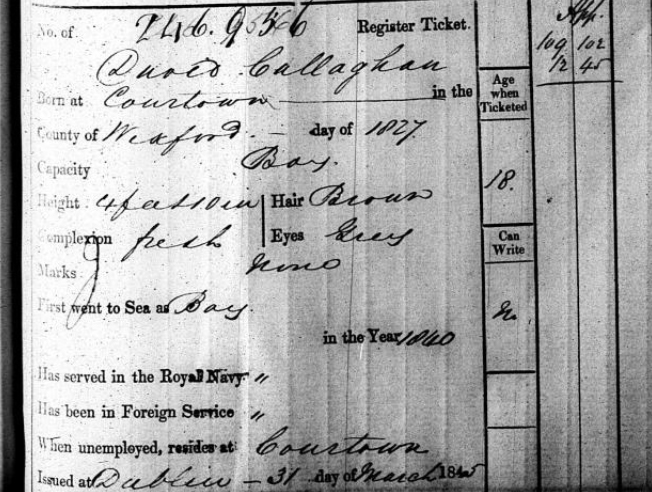 No. of Register Ticket. App.
David Callaghan 109 102
12 45
Born at Courtown in the Age when Ticketed
County of Wexford. day of 1827
Capacity Boy. 18.
Height 4 feet 10 in Hair Brown
Complexion fresh Eyes Grey Can Write
Marks None
First went to Sea as Boy. N.
in the Year 1840
Has served in the Royal Navy "
Has been in Foreign Service "
When unemployed, resides at Courtown
Issued at Dublin - 31 day of March 1845